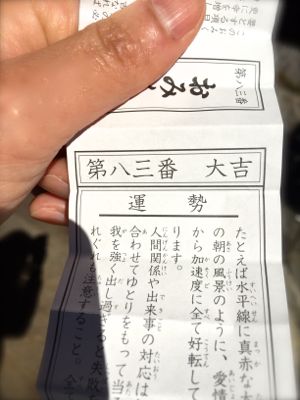 第八三番
おみ
第八三番 大吉
運勢
たとえば水平線に真赤な太
の朝の風景のように、愛情
から加速度に全て好転して
ります。
人間関係や出来事の対応は
合わせてゆとりをもって当
我を強く出し過ぎると失敗
れぐれも注意すること。全